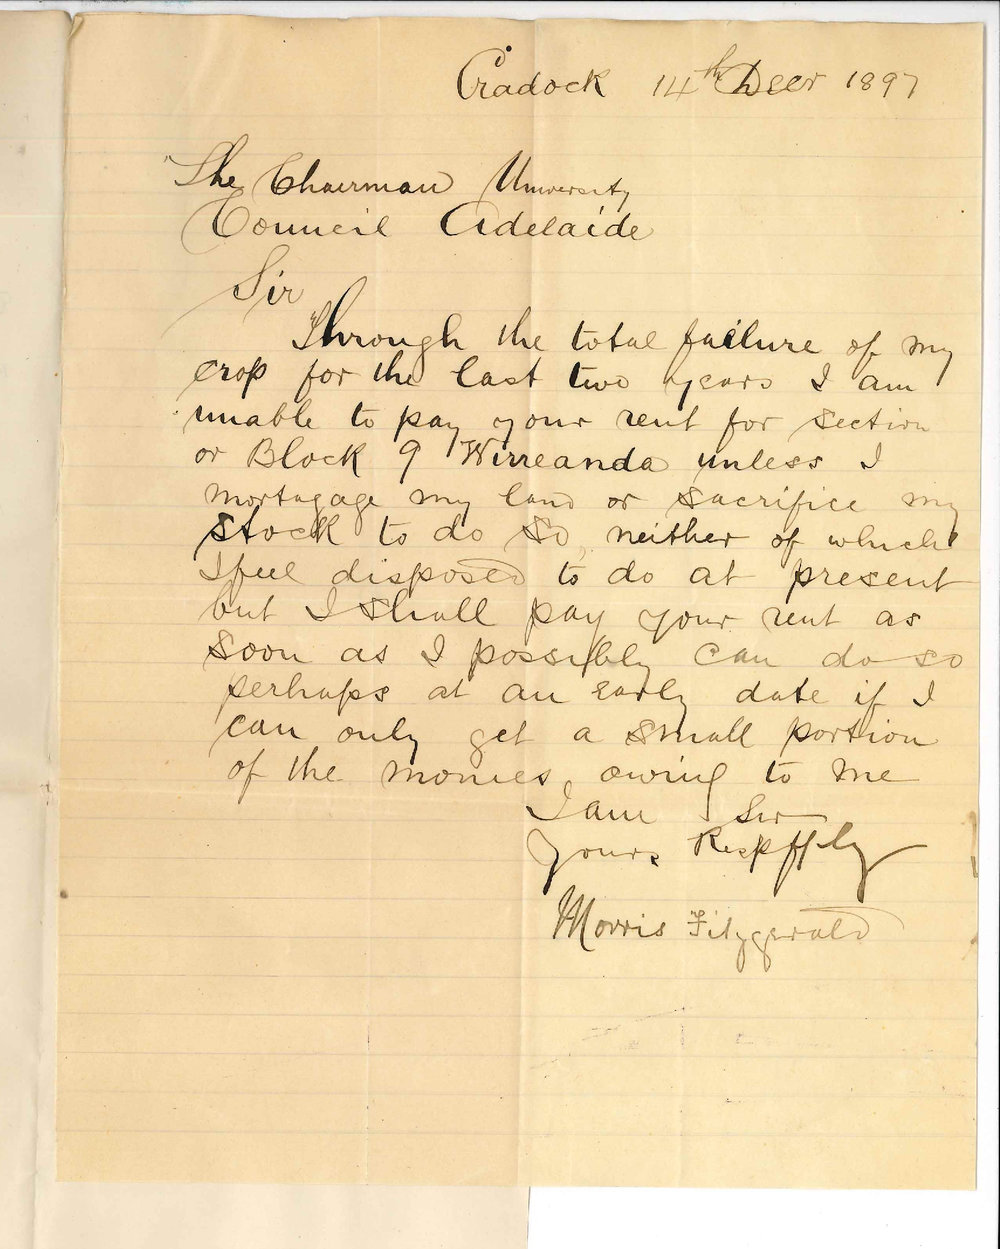 Cradock 14th Decr 1897
The Chairman University
Council Adelaide
Sir
Through the total failure of my
crop for the last two years I am
unable to pay your rent for section
or Block 9 Wirreanda unless I
mortagage my land or sacrifice my
stock to do so, neither of which
I feel disposed to do at present
but I shall pay your rent as
soon as I possibly can do so
perhaps at an early date if I
can only get a small portion
of the monies owing to me
I am Sir
Yours Respffly
Morris Fitzgerald